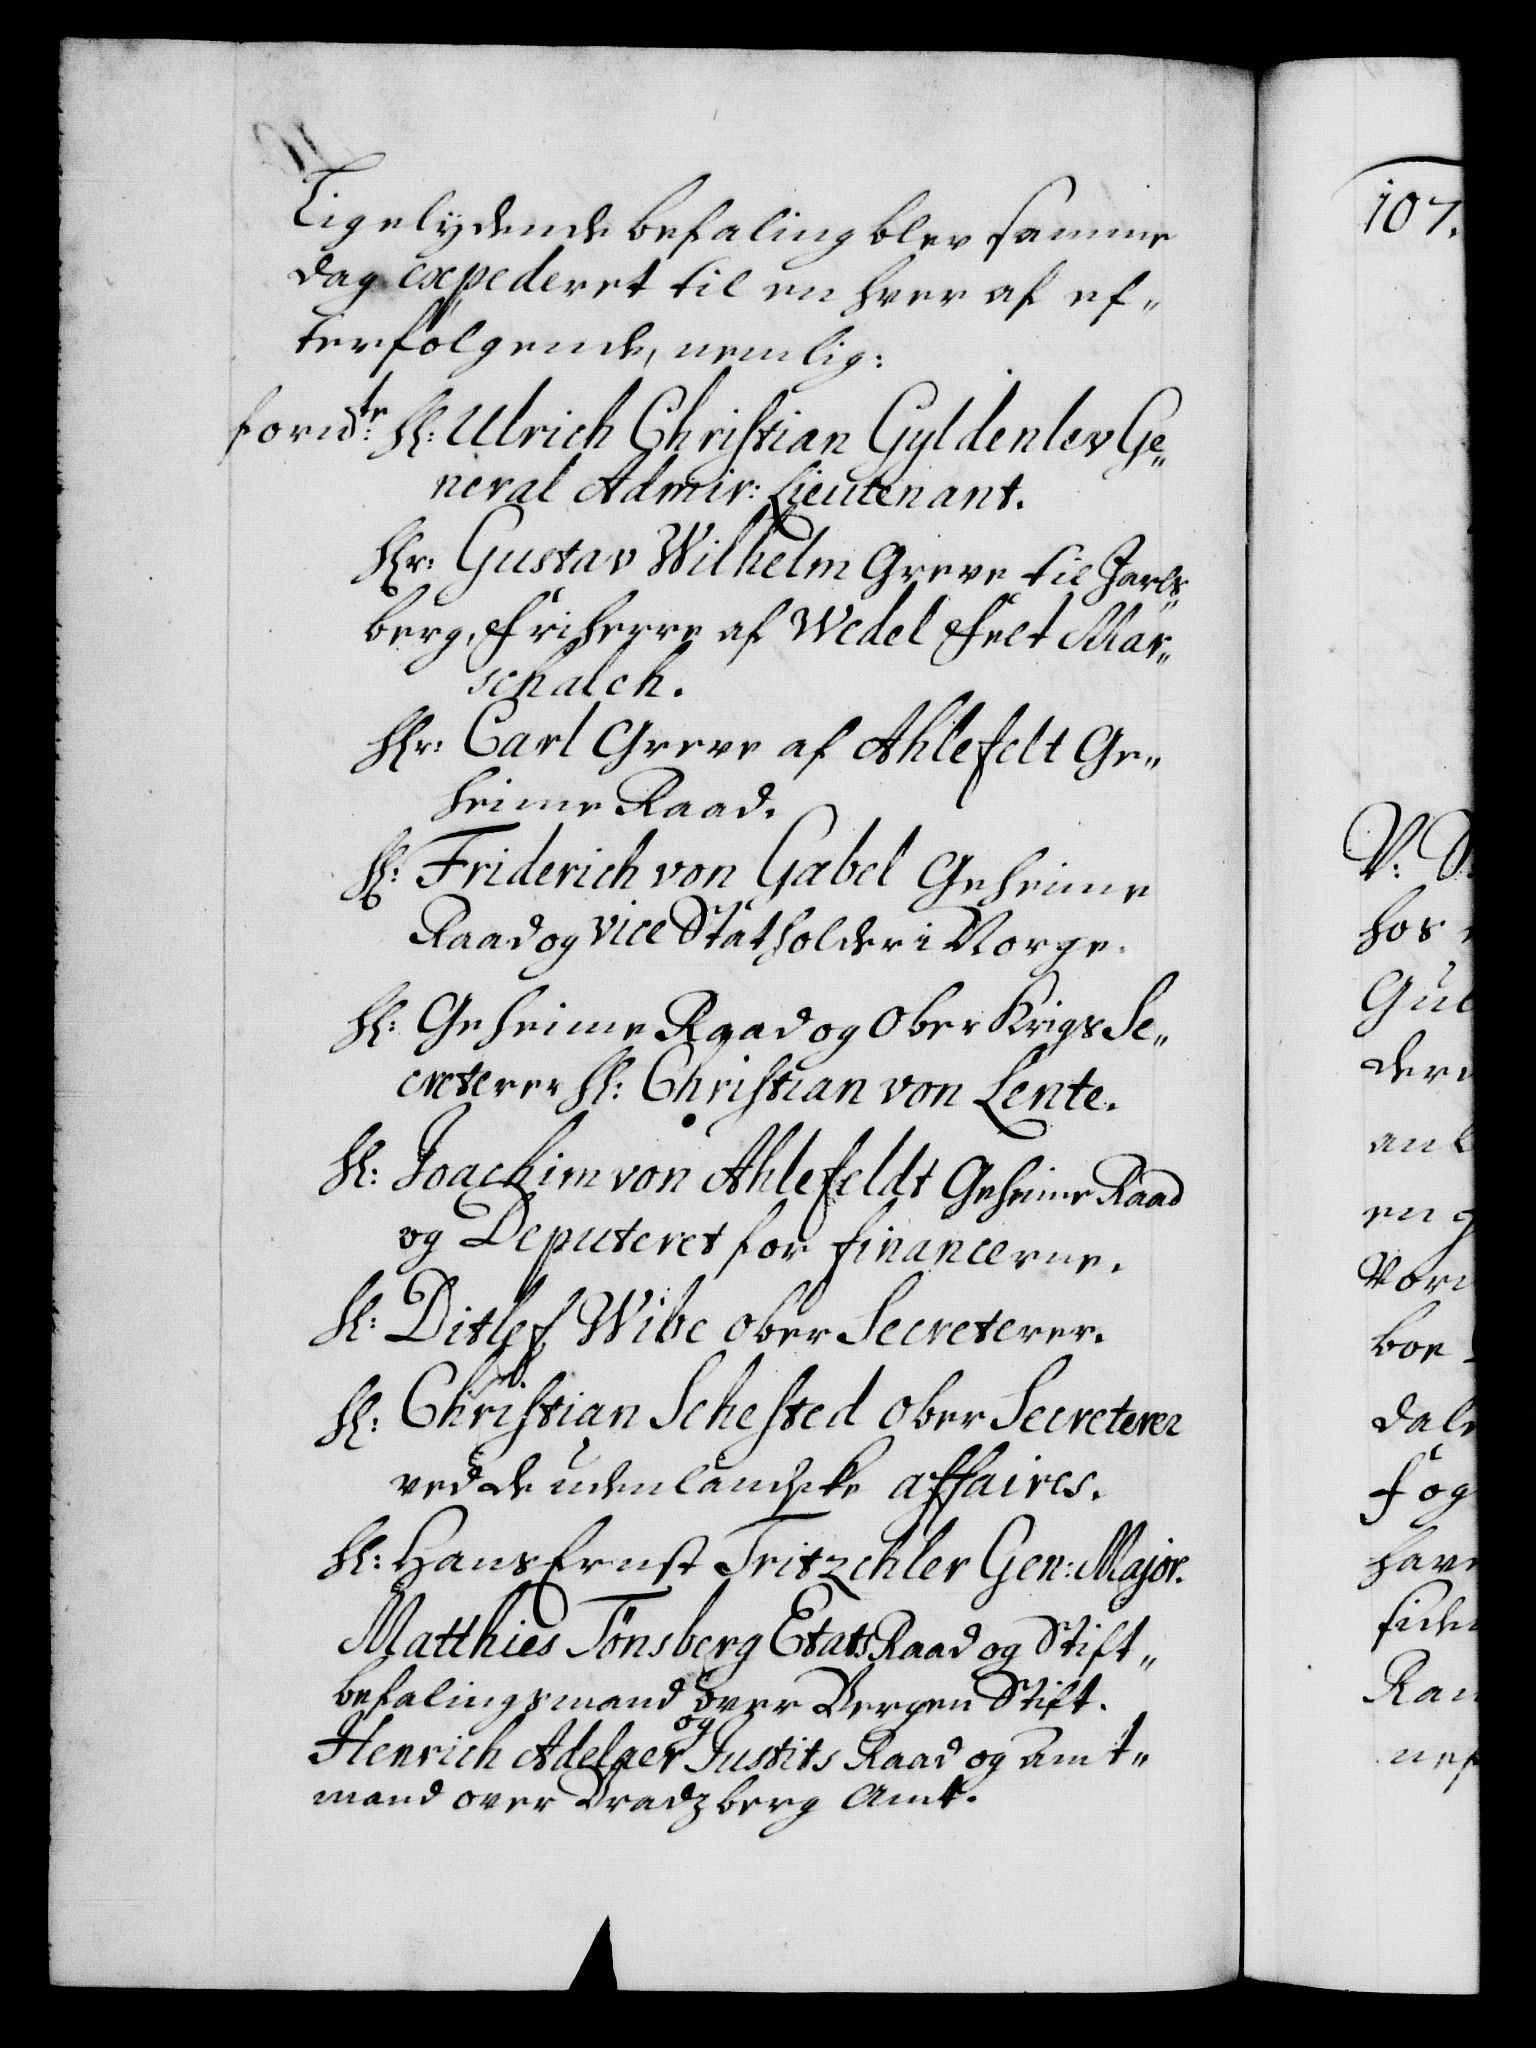 Ligelydende befaling blev samme
dag expederet til en hver af ef„
terfölgende, nemlig:
H: Ulrich Christian Gyldenlev Ge„
neral Admir: Lieutenant.
Hr: Gustav Wilhelm Greve til Jarls„
berg, Friherre af Wedel Felt Mar„
schalch.
Hr: Carl Greve af Ahlefelt Ge„
heime Raad.
H: Friderich von Gabel Geheime
Raad og vice Statholder i Norge.
H: Geheime Raad og Ober Krigs Se„
creterer H: Christian von Lente.
H: Joachim von Ahlefeldt Geheime Raad
og Deputeret for financerne.
H: Ditlef Wibe Ober Secreterer.
H: Christian Sehested Ober Secreterer
ved de udenlandske affaires.
H: Hans Ernst Tritzchler Gen: Major.
Matthies Tönsberg Etats Raad og Stift„
befalingsmand over Bergen Stift.
og
Henrich Adelaer Justits Raad og Amt„
mand over Bradzberg Amt.
107.